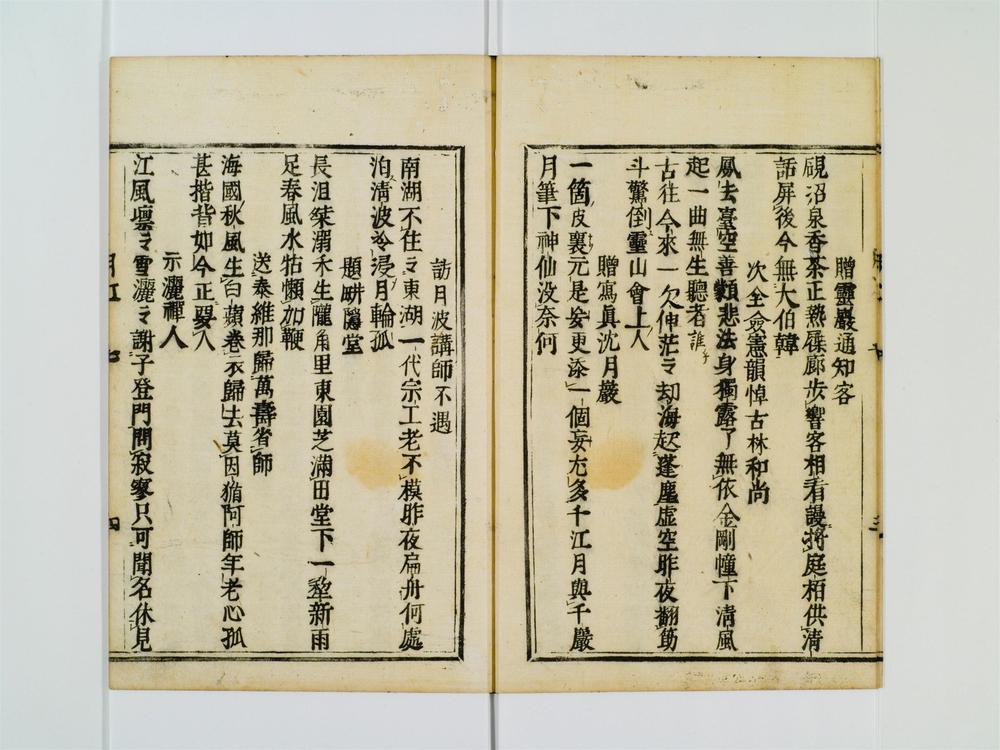 贈靈巖通知客
硯沼泉香茶正熱屧廊步響客相看謾將庭栢供清
話屏後今無大伯韓
次全愈憲韻悼古林和尚
鳳去臺空善類悲法身獨露了無依金剛幢下清風
起一曲無生聽者誰
古往今來一欠伸茫〻却海起蓬塵虛空昨夜翻筋
斗驚倒靈山會上人
贈寫眞沈月巖
一箇皮囊元是妄更添一個妄尤多千江月與千巖
月筆下神仙没奈何
訪月波講師不遇
南湖不住〻東湖一代宗工老不模昨夜扁舟何處
泊清波冷浸月輪孤
題畊隱堂
長沮桀溺禾生隴角里東園芝滿田堂下一犂新雨
足春風水牯懶加鞭
送泰維那歸萬壽省師
海國秋風生白蘋卷衣歸去莫因循阿師年老心孤
甚揩背如今正要人
示灑禪人
江風凛〻雪灑〻謝子登門問寂寥只可聞名休見